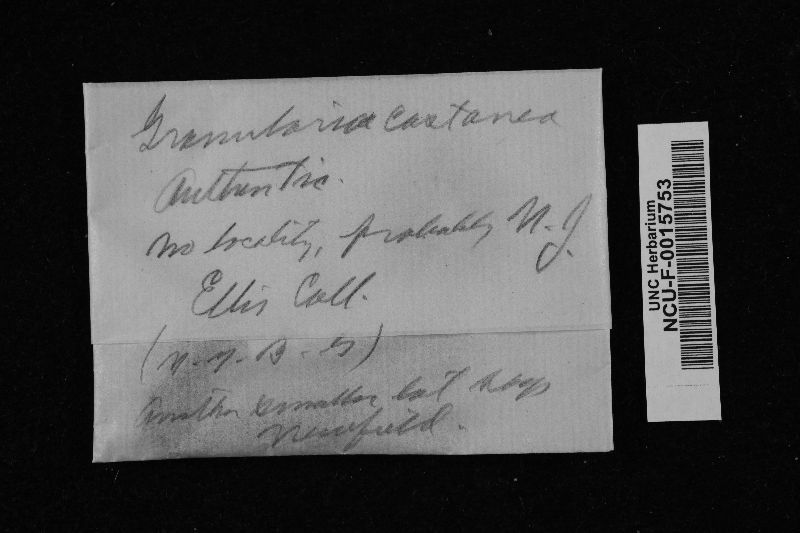 Granularia castanea
Authentic.
No locality, probably N.J.
Ellis Coll.
(N.Y.B.G)
Another smaller lot says
Newfield.
UNC Herbarium
NCU-F-0015753